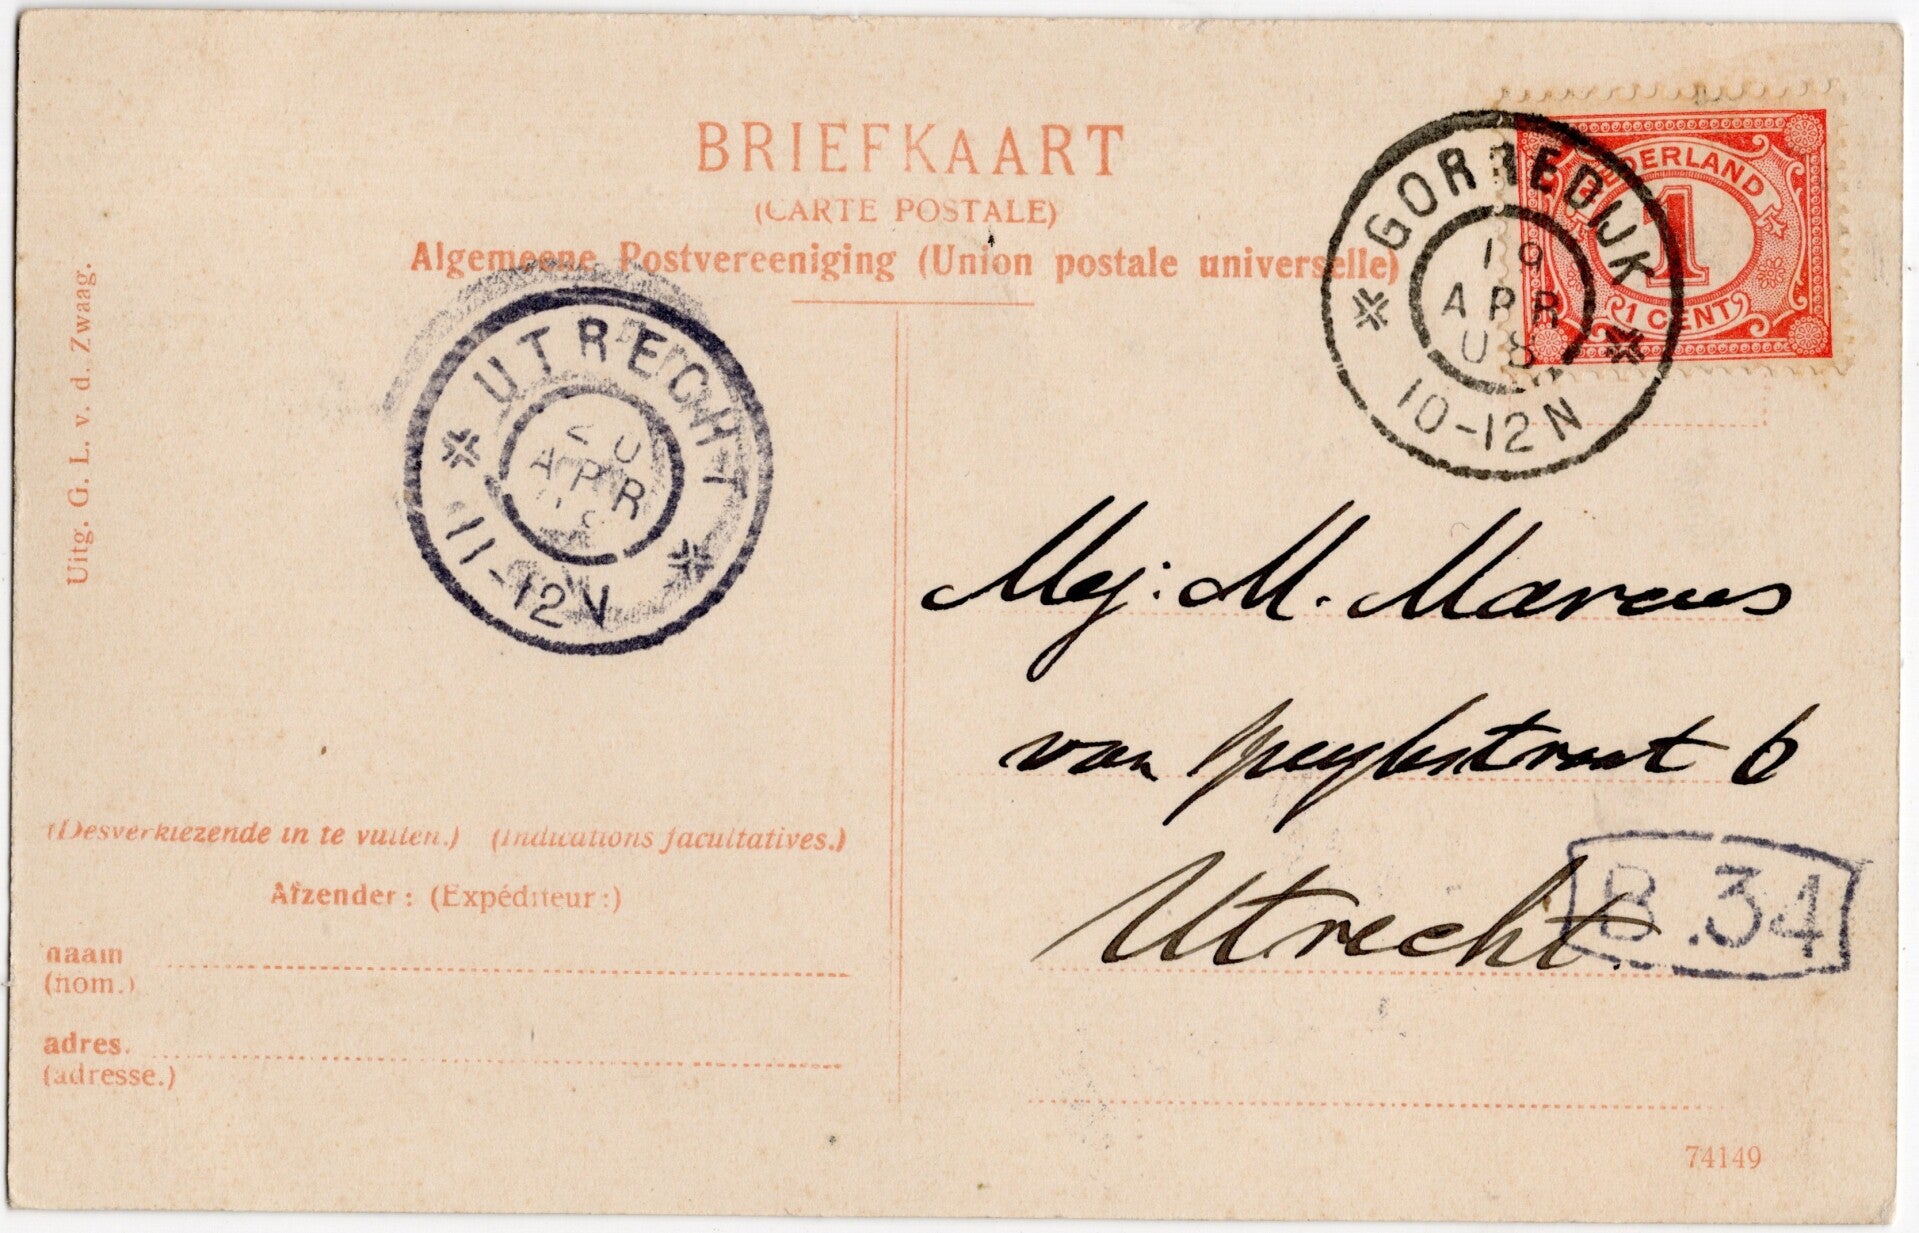 BRIEFKAART
(CARTE POSTALE)
Algemeene Postvereeniging (Union postale universelle)
NEDERLAND
1
1 CENT
GORREDIJK
19
APR
08
10-12N
UTRECHT
20
APR
08
11-12V
Uitg. G. L. v. d. Zwaag.
Mej: M. Marcus
van Speykstraat 6
Utrecht.
B.34
(Desverkiezende in te vullen.) (Indications facultatives.)
Afzender: (Expéditeur:)
naam
(nom.)
adres.
(adresse.)
74149